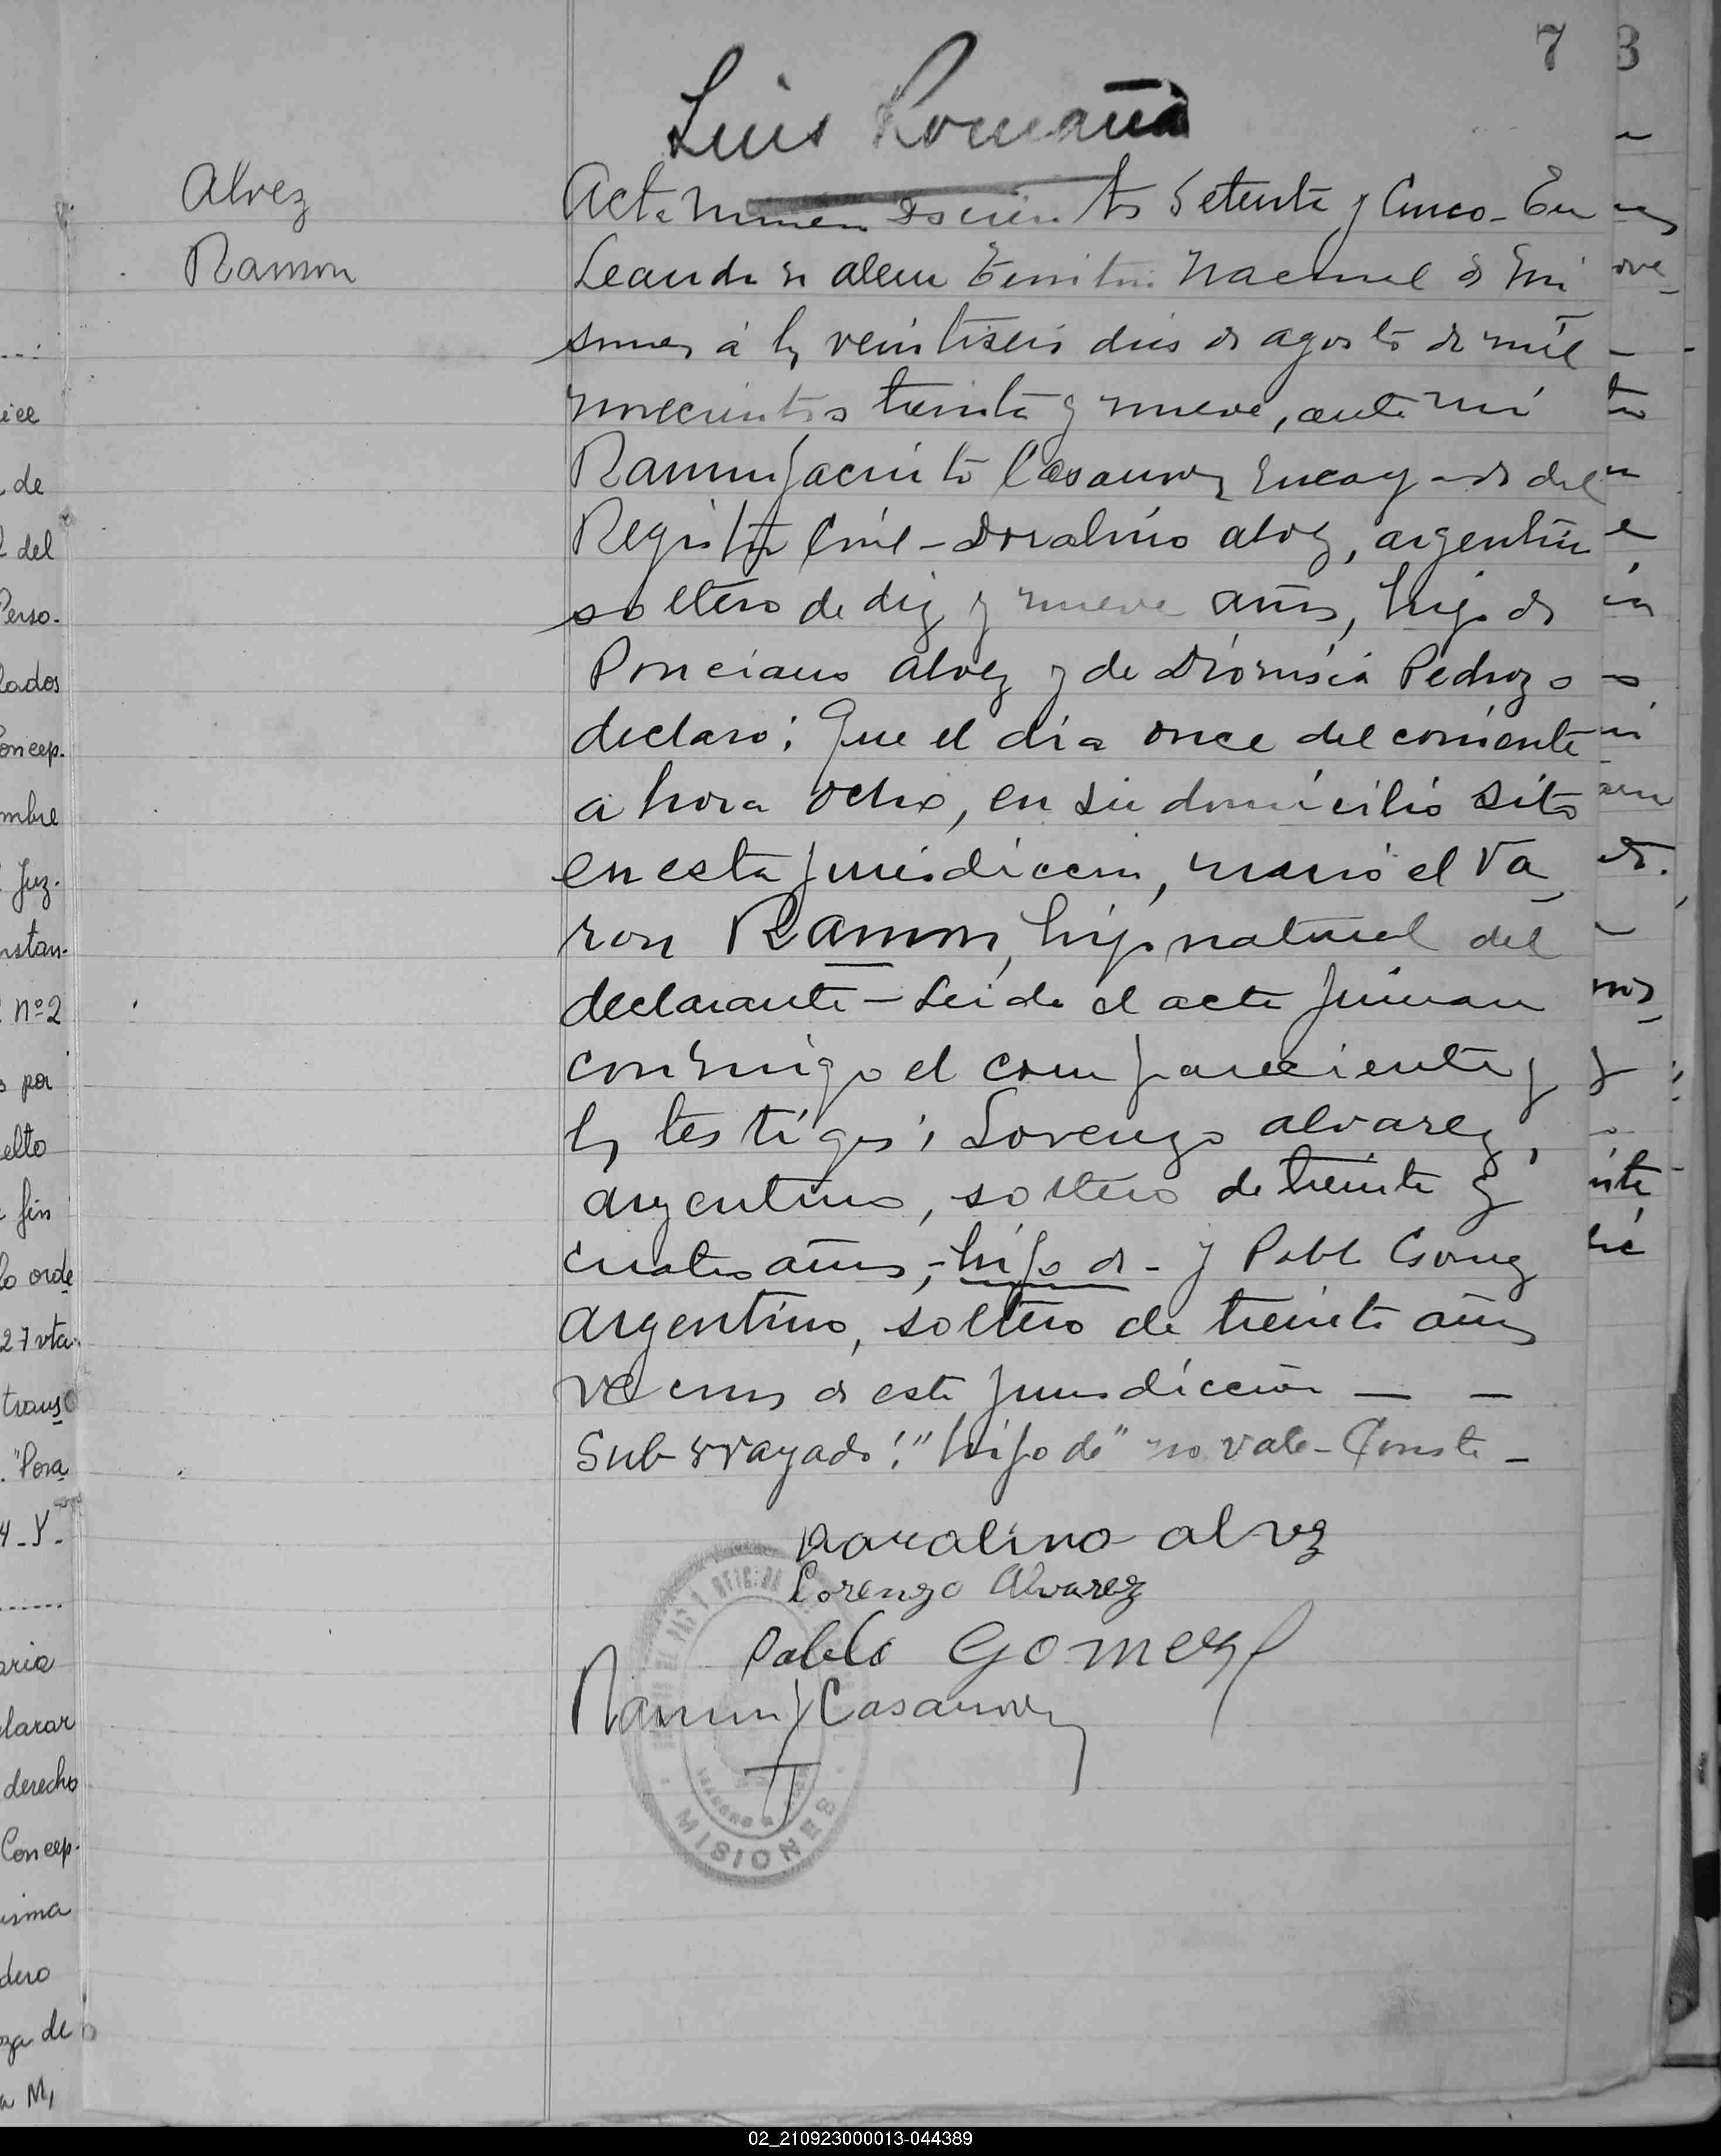 7 3
Luis Romaña
Alvez
Ramon
Acta número doscientos Setenta y Cinco - En
Leandro N Alem Territorio Nacional de Mi
siones á los veintiseis dias de agosto de mil
novecientos treinta y nueve, ante mi
Ramon Jacinto Casanova Encargado del
Registro Civil - Doralino Alvez, argentino
soltero de diez y nueve años, hijo de
Ponciano Alvez y de Dionisia Pedrozo
declaró: Que el día once del corriente
a hora ocho, en su domicilio sito
en esta jurisdiccion, nació el Va
ron Ramon, hijo natural del
declarante - Leida el acta firman
conmigo el compareciente y
los testigos; Lorenzo Alvarez,
argentino, soltero de treinta y
cuatro años, - hijo de - y Pablo Gomez
argentino, soltero de treinta años
vecinos de esta jurisdicción — —
Sub-rrayado: "hijo de" no vale - Conste -
Doralino Alvez
Lorenzo Alvarez
Pablo Gomez
Ramon J Casanova
MISIONES
ice
de
del
Perso-
lados
oncep.
mbre
Juz-
nstan-
nº 2
por
elto
fin
lo orde
27 vta.
trans
"Posa
4-Y-
aria
clarar
derecho
Concep-
isma
dero
oza de
a M,
02_210923000013-044389